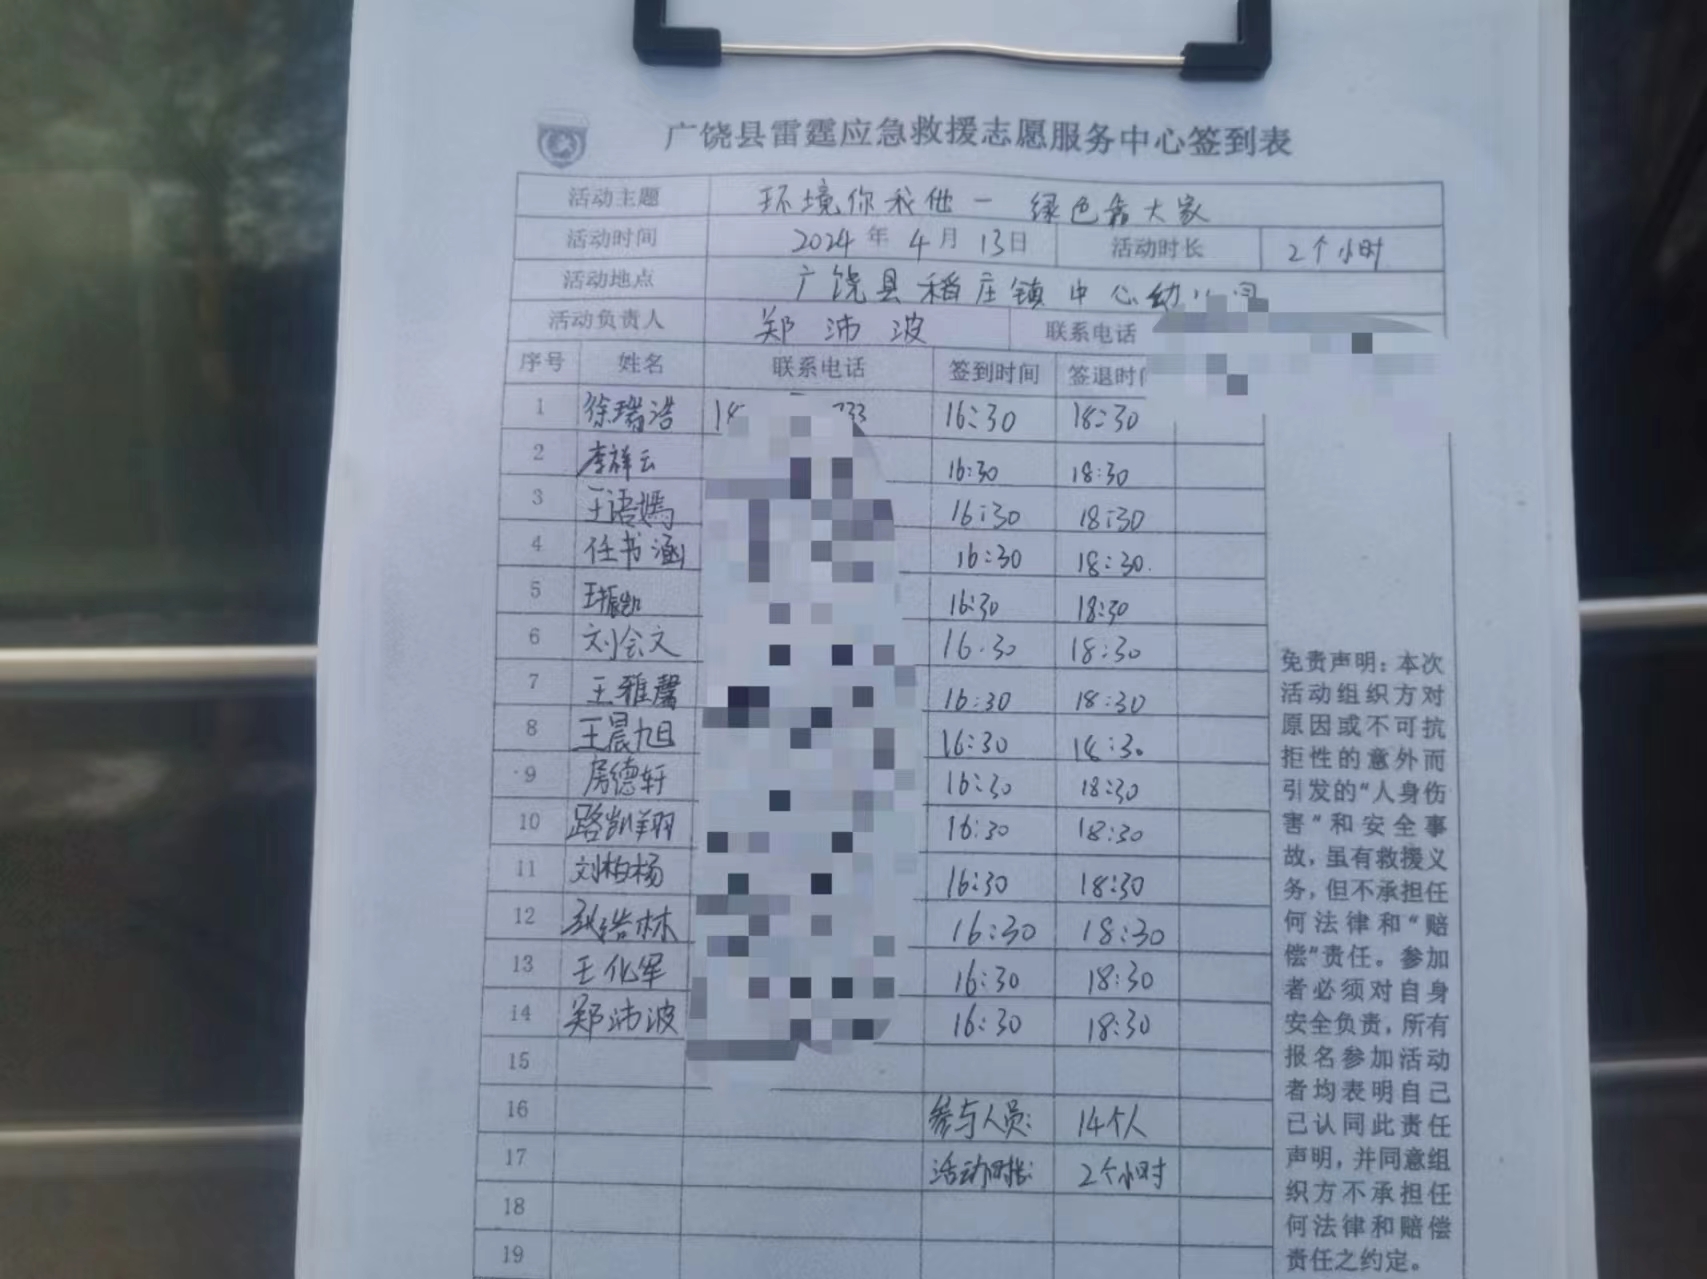 广饶县雷霆应急救援志愿服务中心签到表
活动主题 环境你我他一 绿色靠大家
活动时间 2024年4月13日 活动时长 2个小时
活动地点 广饶县稻庄镇中心幼
活动负责人 郑沛波 联系电话
序号 姓名 联系电话 签到时间 签退时
1 徐瑞浩 16:30 18:30
2 李祥云 16:30 18:30
3 王语嫣 16:30 18:30
4 任书涵 16:30 18:30
5 王振凯 16:30 18:30
6 刘会文 16:30 18:30
7 王雅馨 16:30 18:30
8 王晨旭 16:30 18:30
9 房德轩 16:30 18:30
10 路凯翔 16:30 18:30
11 刘柏杨 16:30 18:30
12 浩林 16:30 18:30
13 王化军 16:30 18:30
14 郑沛波 16:30 18:30
15
16 参与人员: 14个人
17 活动时长: 2个小时
18
19
免责声明:本次
活动组织方对
原因或不可抗
拒性的意外而
引发的“人身伤
害”和安全事
故,虽有救援义
务,但不承担任
何法律和“赔
偿”责任。参加
者必须对自身
安全负责,所有
报名参加活动
者均表明自己
已认同此责任
声明,并同意组
织方不承担任
何法律和赔偿
责任之约定。